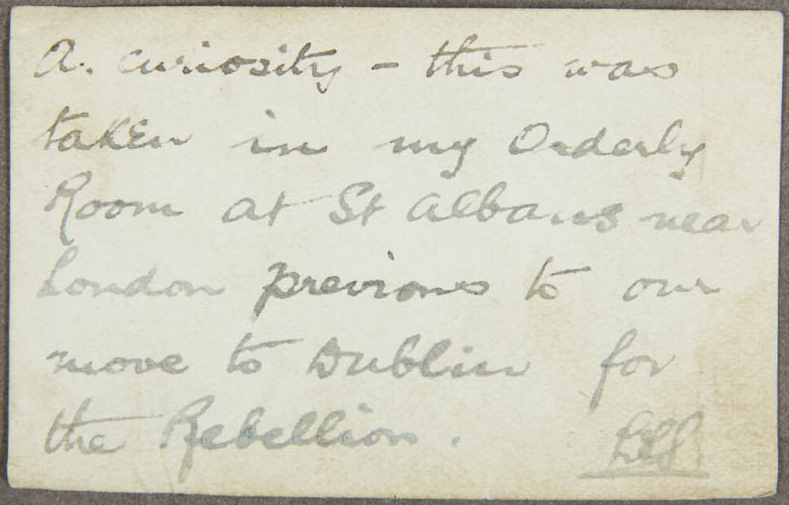 A. curiosity – this was
taken in my Orderly
Room at St Albans near
London previous to our
move to Dublin for
the Rebellion.